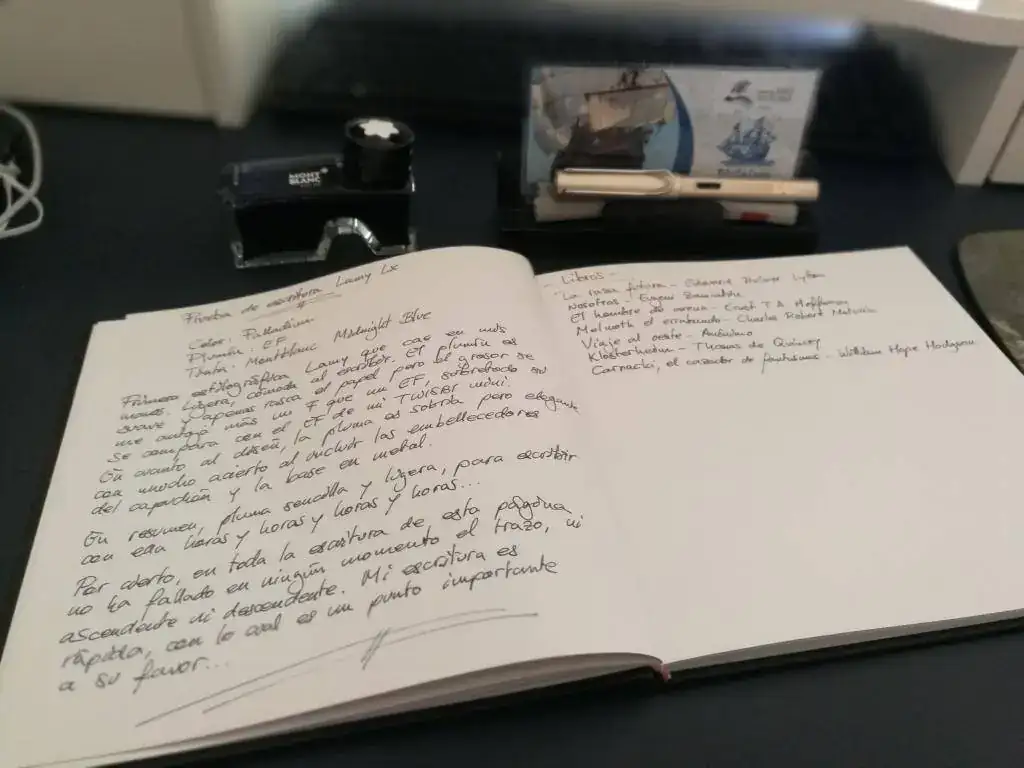 MONT
BLANC
Prueba de escritura Lamy Lx
Color: Palladium
Plumín: EF
Tinta: Montblanc Midnight Blue
Primera estilográfica Lamy que cae en mis
manos. Ligera, cómoda al escribir. El plumín es
suave y apenas rasca el papel pero el grosor se
me antoja más un F que un EF, sobretodo si
se compara con el EF de mi TWSBI mini.
En cuanto al diseño, la pluma es sobria pero elegante
con mucho acierto al incluir los embellecedores
del capuchón y la base en metal.
En resumen, pluma sencilla y ligera, para escribir
con ella horas y horas y horas...
Por cierto, en toda la escritura de esta página
no ha fallado en ningún momento el trazo, ni
ascendente ni descendente. Mi escritura es
rápida, con lo cual es un punto importante
a su favor...
- Libros -
La raza futura - Edward Bulwer Lytton
Nosotros - Eugeni Zamiatin
El hombre de arena - Ernst T.A. Hoffmann
Melmoth el errabundo - Charles Robert Maturin
Viaje al oeste - Anónimo
Klosterheim - Thomas de Quincey
Carnacki, el cazador de fantasmas - William Hope Hodgson